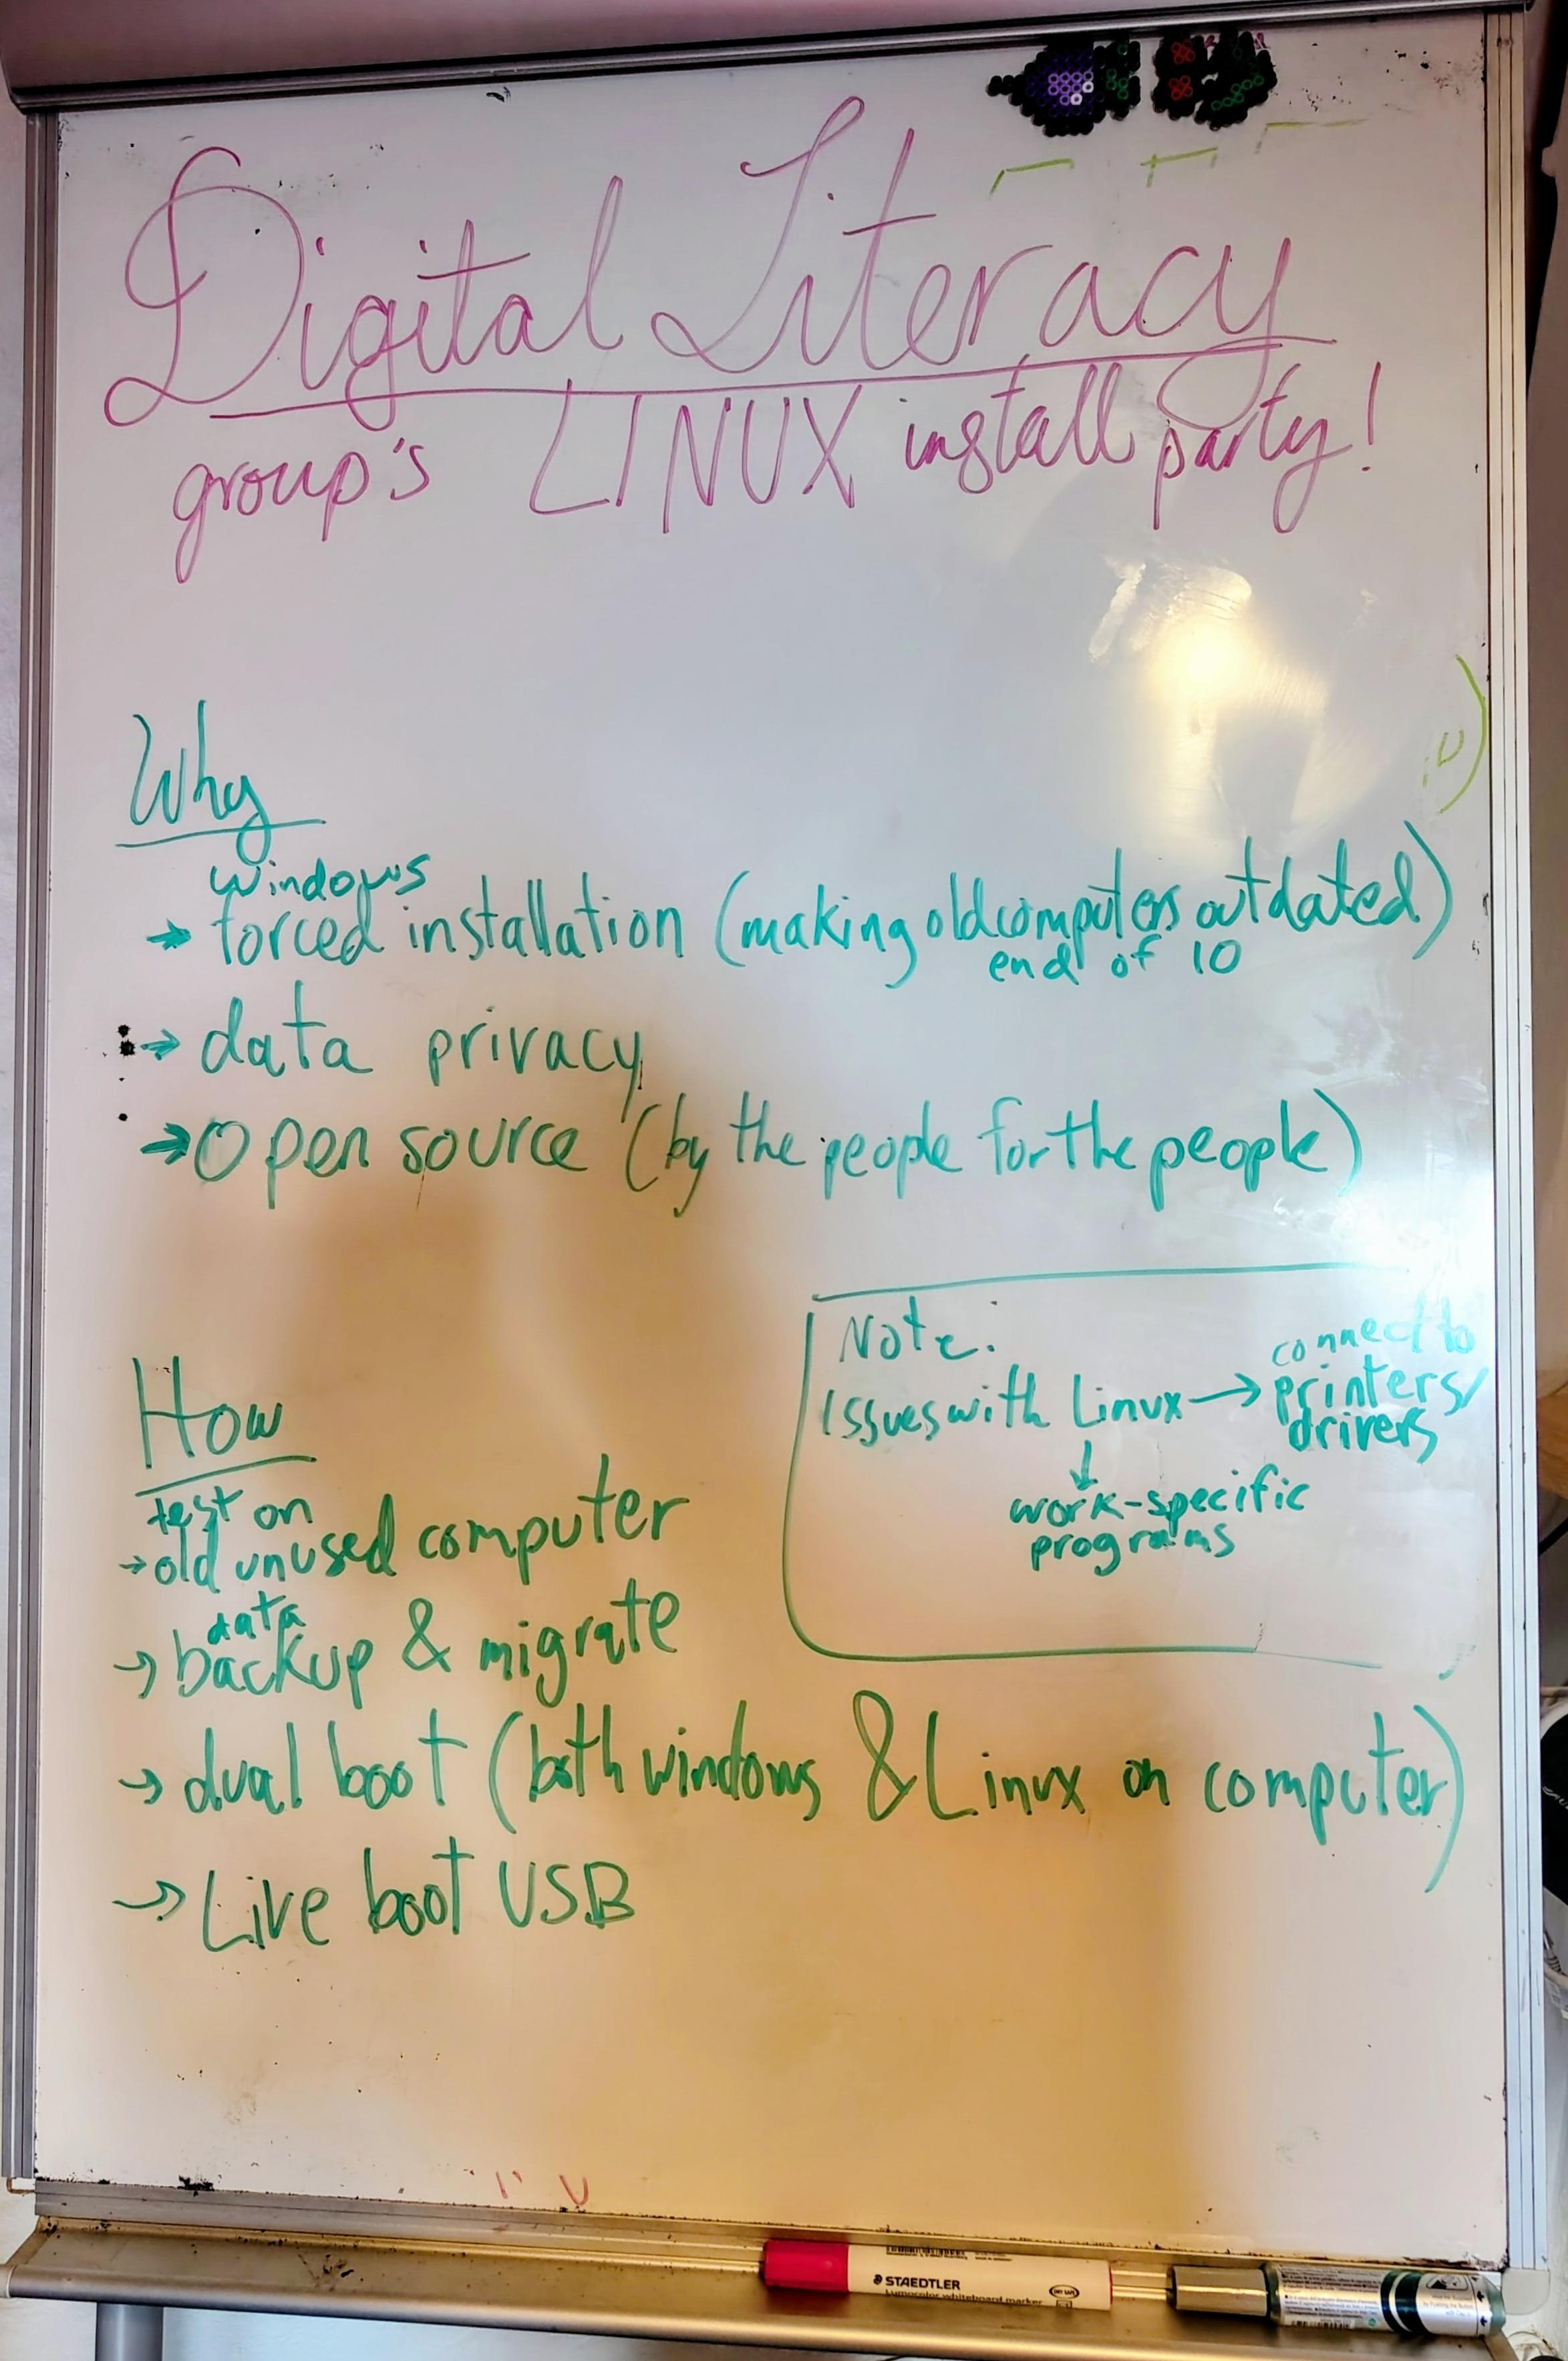 Digital Literacy
group's LINUX install party!
Why
windows
→ forced installation (making old computers outdated)
end of 10
→ data privacy
→ Open source (by the people for the people)
Note:
Issues with Linux → connect to
printers/
drivers
↓
work-specific
programs
How
test on
→ old unused computer
data
→ backup & migrate
→ dual boot (both windows & Linux on computer)
→ Live boot USB
STAEDTLER
Lumocolor whiteboard marker